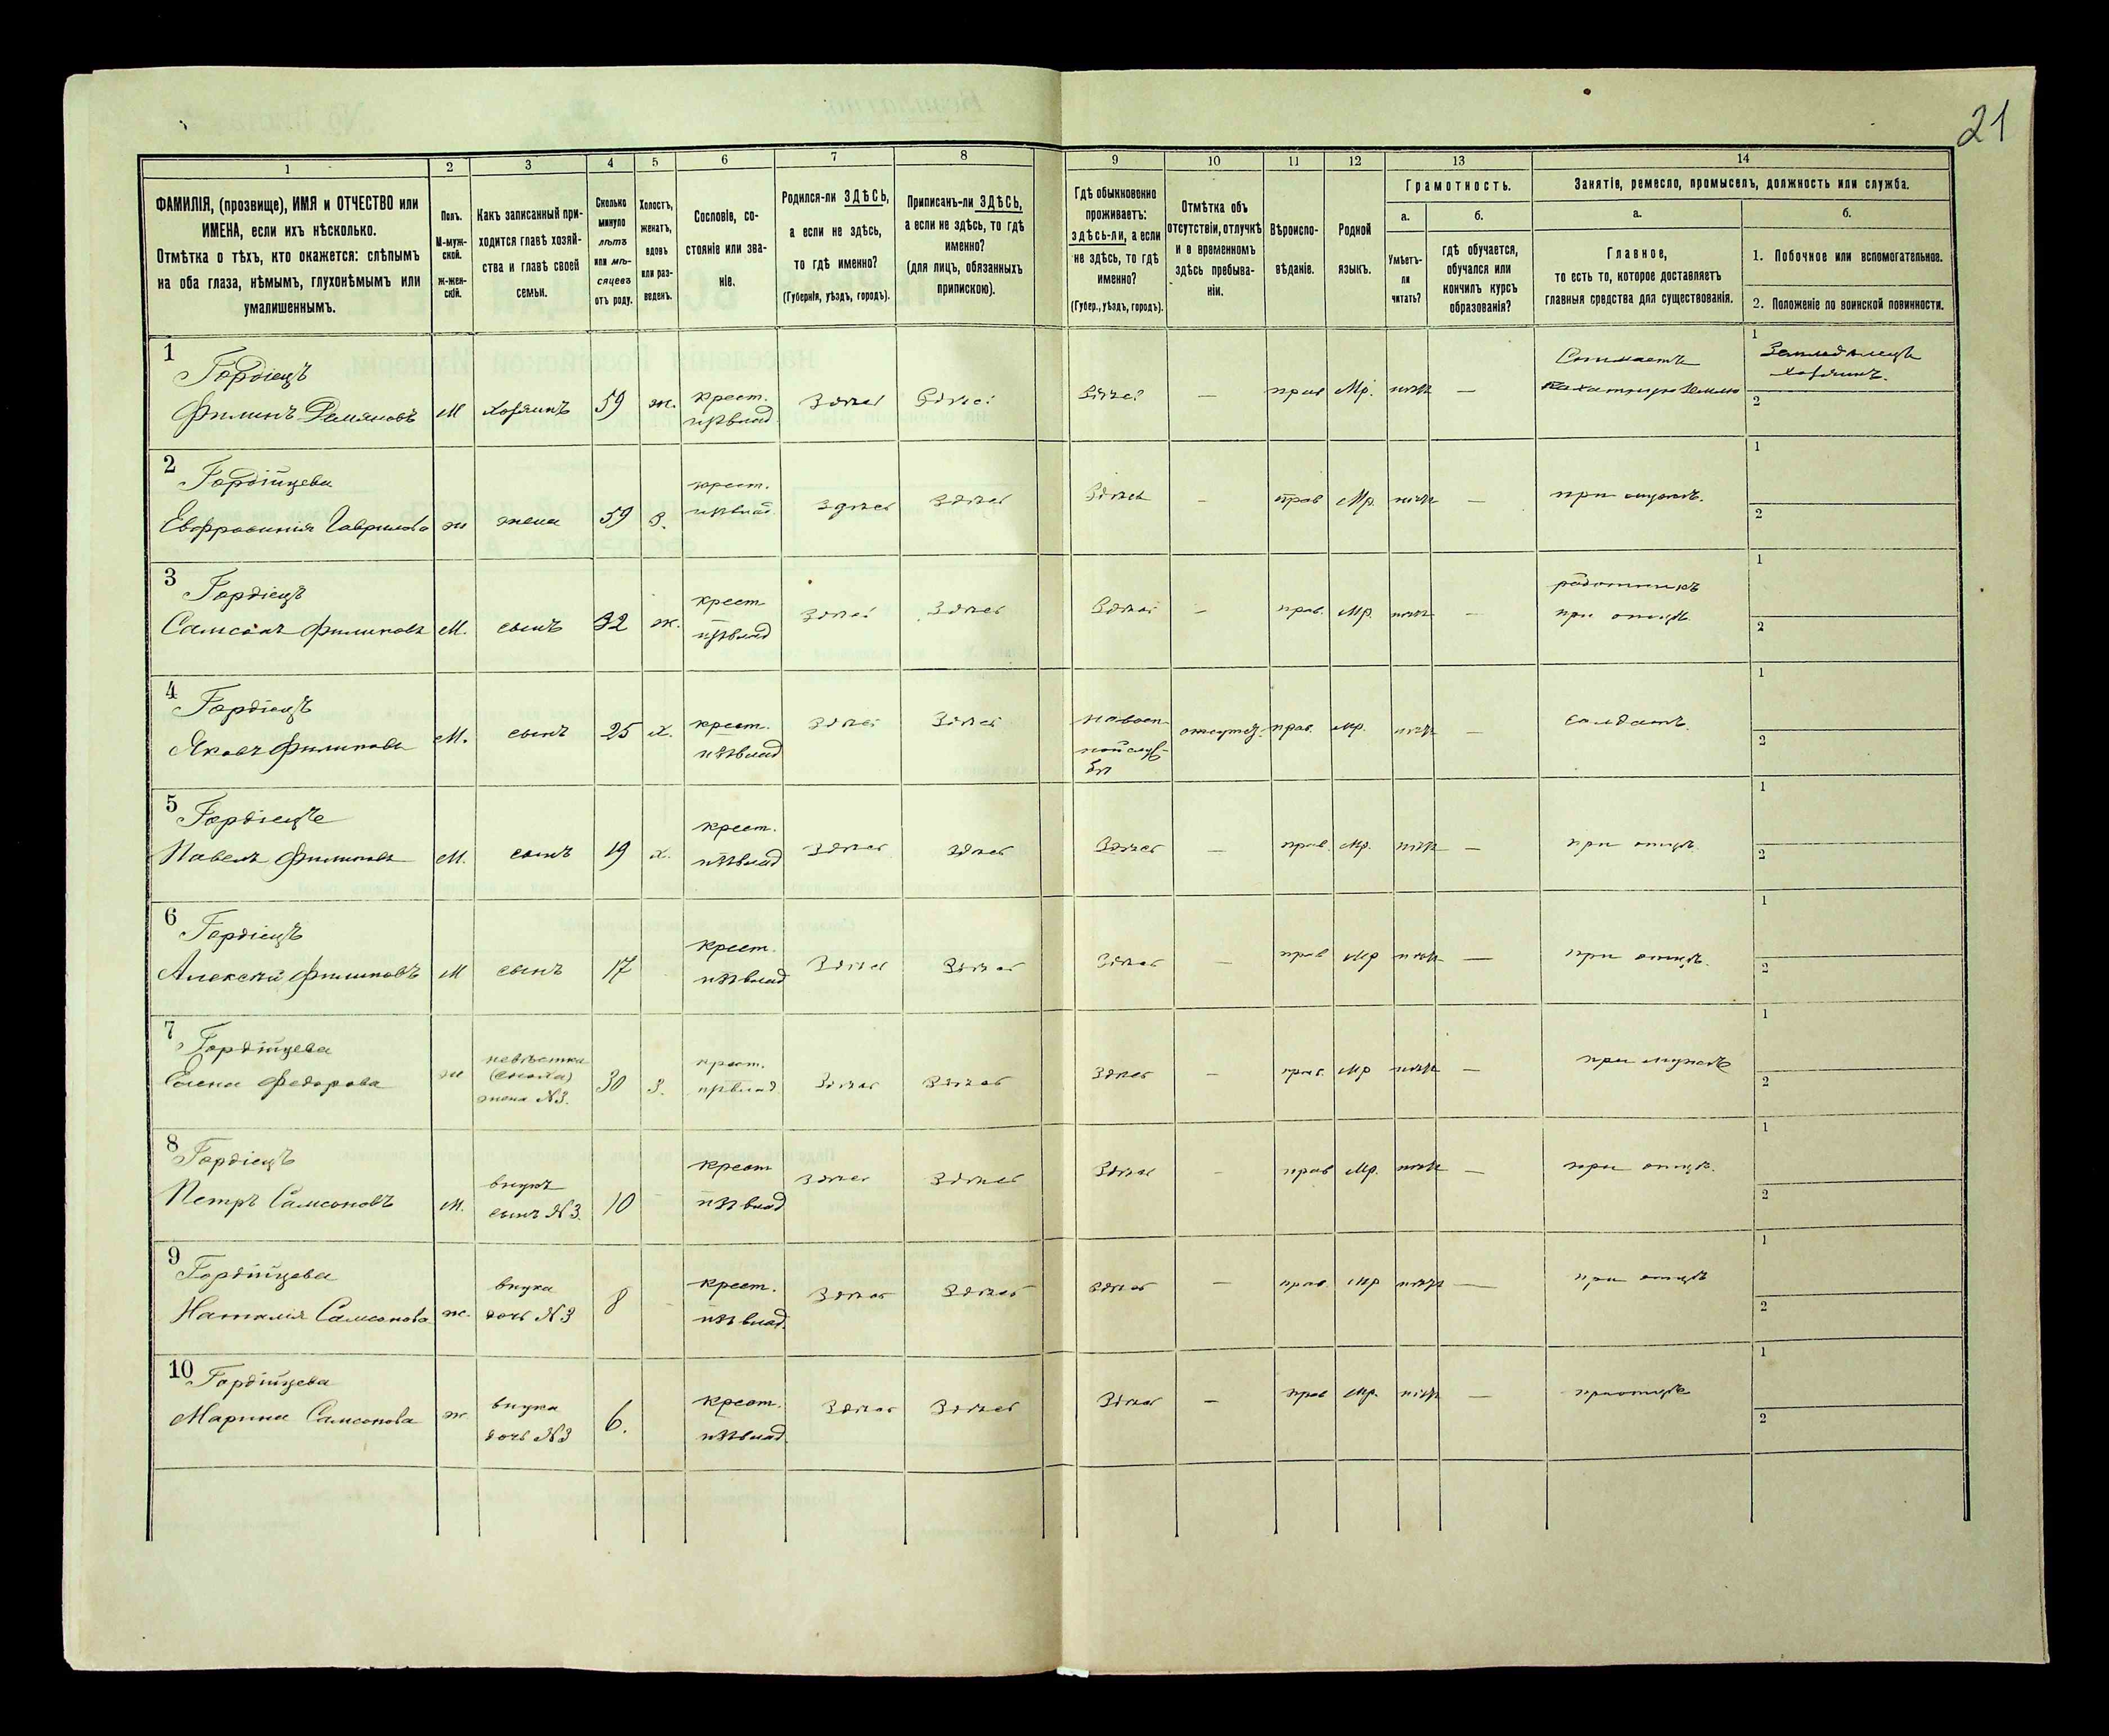 21
1 2 3 4 5 6 7 8 9 10 11 12 13 14
ФАМИЛІЯ, (прозвище), ИМЯ и ОТЧЕСТВО или
ИМЕНА, если ихъ нѣсколько.
Отмѣтка о тѣхъ, кто окажется: слѣпымъ
на оба глаза, нѣмымъ, глухонѣмымъ или
умалишеннымъ.
Полъ.
М-муж-
ской.
ж-жен-
скій.
Какъ записанный при-
ходится главѣ хозяй-
ства и главѣ своей
семьи.
Сколько
минуло
лѣтъ
или мѣ-
сяцевъ
отъ роду.
Холостъ,
женатъ,
вдовъ
или раз-
веденъ.
Сословіе, со-
стояніе или зва-
ніе.
Родился-ли ЗДѢСЬ,
а если не здѣсь,
то гдѣ именно?
(Губернія, уѣздъ, городъ).
Приписанъ-ли ЗДѢСЬ,
а если не здѣсь, то гдѣ
именно?
(для лицъ, обязанныхъ
припискою).
Гдѣ обыкновенно
проживаетъ:
здѣсь-ли, а если
не здѣсь, то гдѣ
именно?
(Губер., уѣздъ, городъ).
Отмѣтка объ
отсутствіи, отлучкѣ
и о временномъ
здѣсь пребыва-
ніи.
Вѣроиспо-
вѣданіе.
Родной
языкъ.
Грамотность.
а.
Умѣетъ-
ли
читать?
б.
гдѣ обучается,
обучался или
кончилъ курсъ
образованія?
Занятіе, ремесло, промыселъ, должность или служба.
а.
Главное,
то есть то, которое доставляетъ
главныя средства для существованія.
б.
1. Побочное или вспомогательное.
2. Положеніе по воинской повинности.
1 Гордіецъ
Филипъ Демяновъ М хозяинъ 59 ж. крест. Здѣсь Здѣсь Здѣсь — прав Мр. нѣтъ — Снимаетъ
пахатную землю 1 Земледѣлецъ
хозяинъ. 2
2 Гордійцева
Евфросинія Гаврилова ж жена 59 З. крест. Здѣсь Здѣсь Здѣсь — прав Мр. нѣтъ — при мужѣ. 1 2
3 Гордіецъ
Самсонъ Филиповъ М. сынъ 32 ж. крест Здѣсь Здѣсь Здѣсь — прав. Мр. нѣтъ — работникъ
при отцѣ. 1 2
4 Гордіецъ
Яковъ Филиповъ М. сынъ 25 х. крест. Здѣсь Здѣсь на воен-
ной служ-
бѣ отсутс. прав. Мр. нѣтъ — солдатъ. 1 2
5 Гордіецъ
Павелъ Филиповъ М. сынъ 19 х. крест. Здѣсь Здѣсь Здѣсь — прав. Мр. нѣтъ — при отцѣ. 1 2
6 Гордіецъ
Алексѣй Филиповъ М сынъ 17 крест. Здѣсь Здѣсь Здѣсь — прав Мр нѣтъ — при отцѣ. 1 2
7 Гордійцева
Елена Федорова ж невѣстка
(сноха)
жена №3. 30 З. крест. Здѣсь Здѣсь Здѣсь — прав. Мр нѣтъ — при мужѣ 1 2
8 Гордіецъ
Петръ Самсоновъ М. внукъ
сынъ №3. 10 крест Здѣсь Здѣсь Здѣсь — прав Мр. нѣтъ — при отцѣ. 1 2
9 Гордійцева
Наталія Самсонова ж. внука
дочь №3 8 крест. Здѣсь Здѣсь Здѣсь — прав. Мр нѣтъ — при отцѣ 1 2
10 Гордійцева
Марина Самсонова ж внука
дочь №3 6. крест. Здѣсь Здѣсь Здѣсь — прав Мр. нѣтъ — при отцѣ 1 2